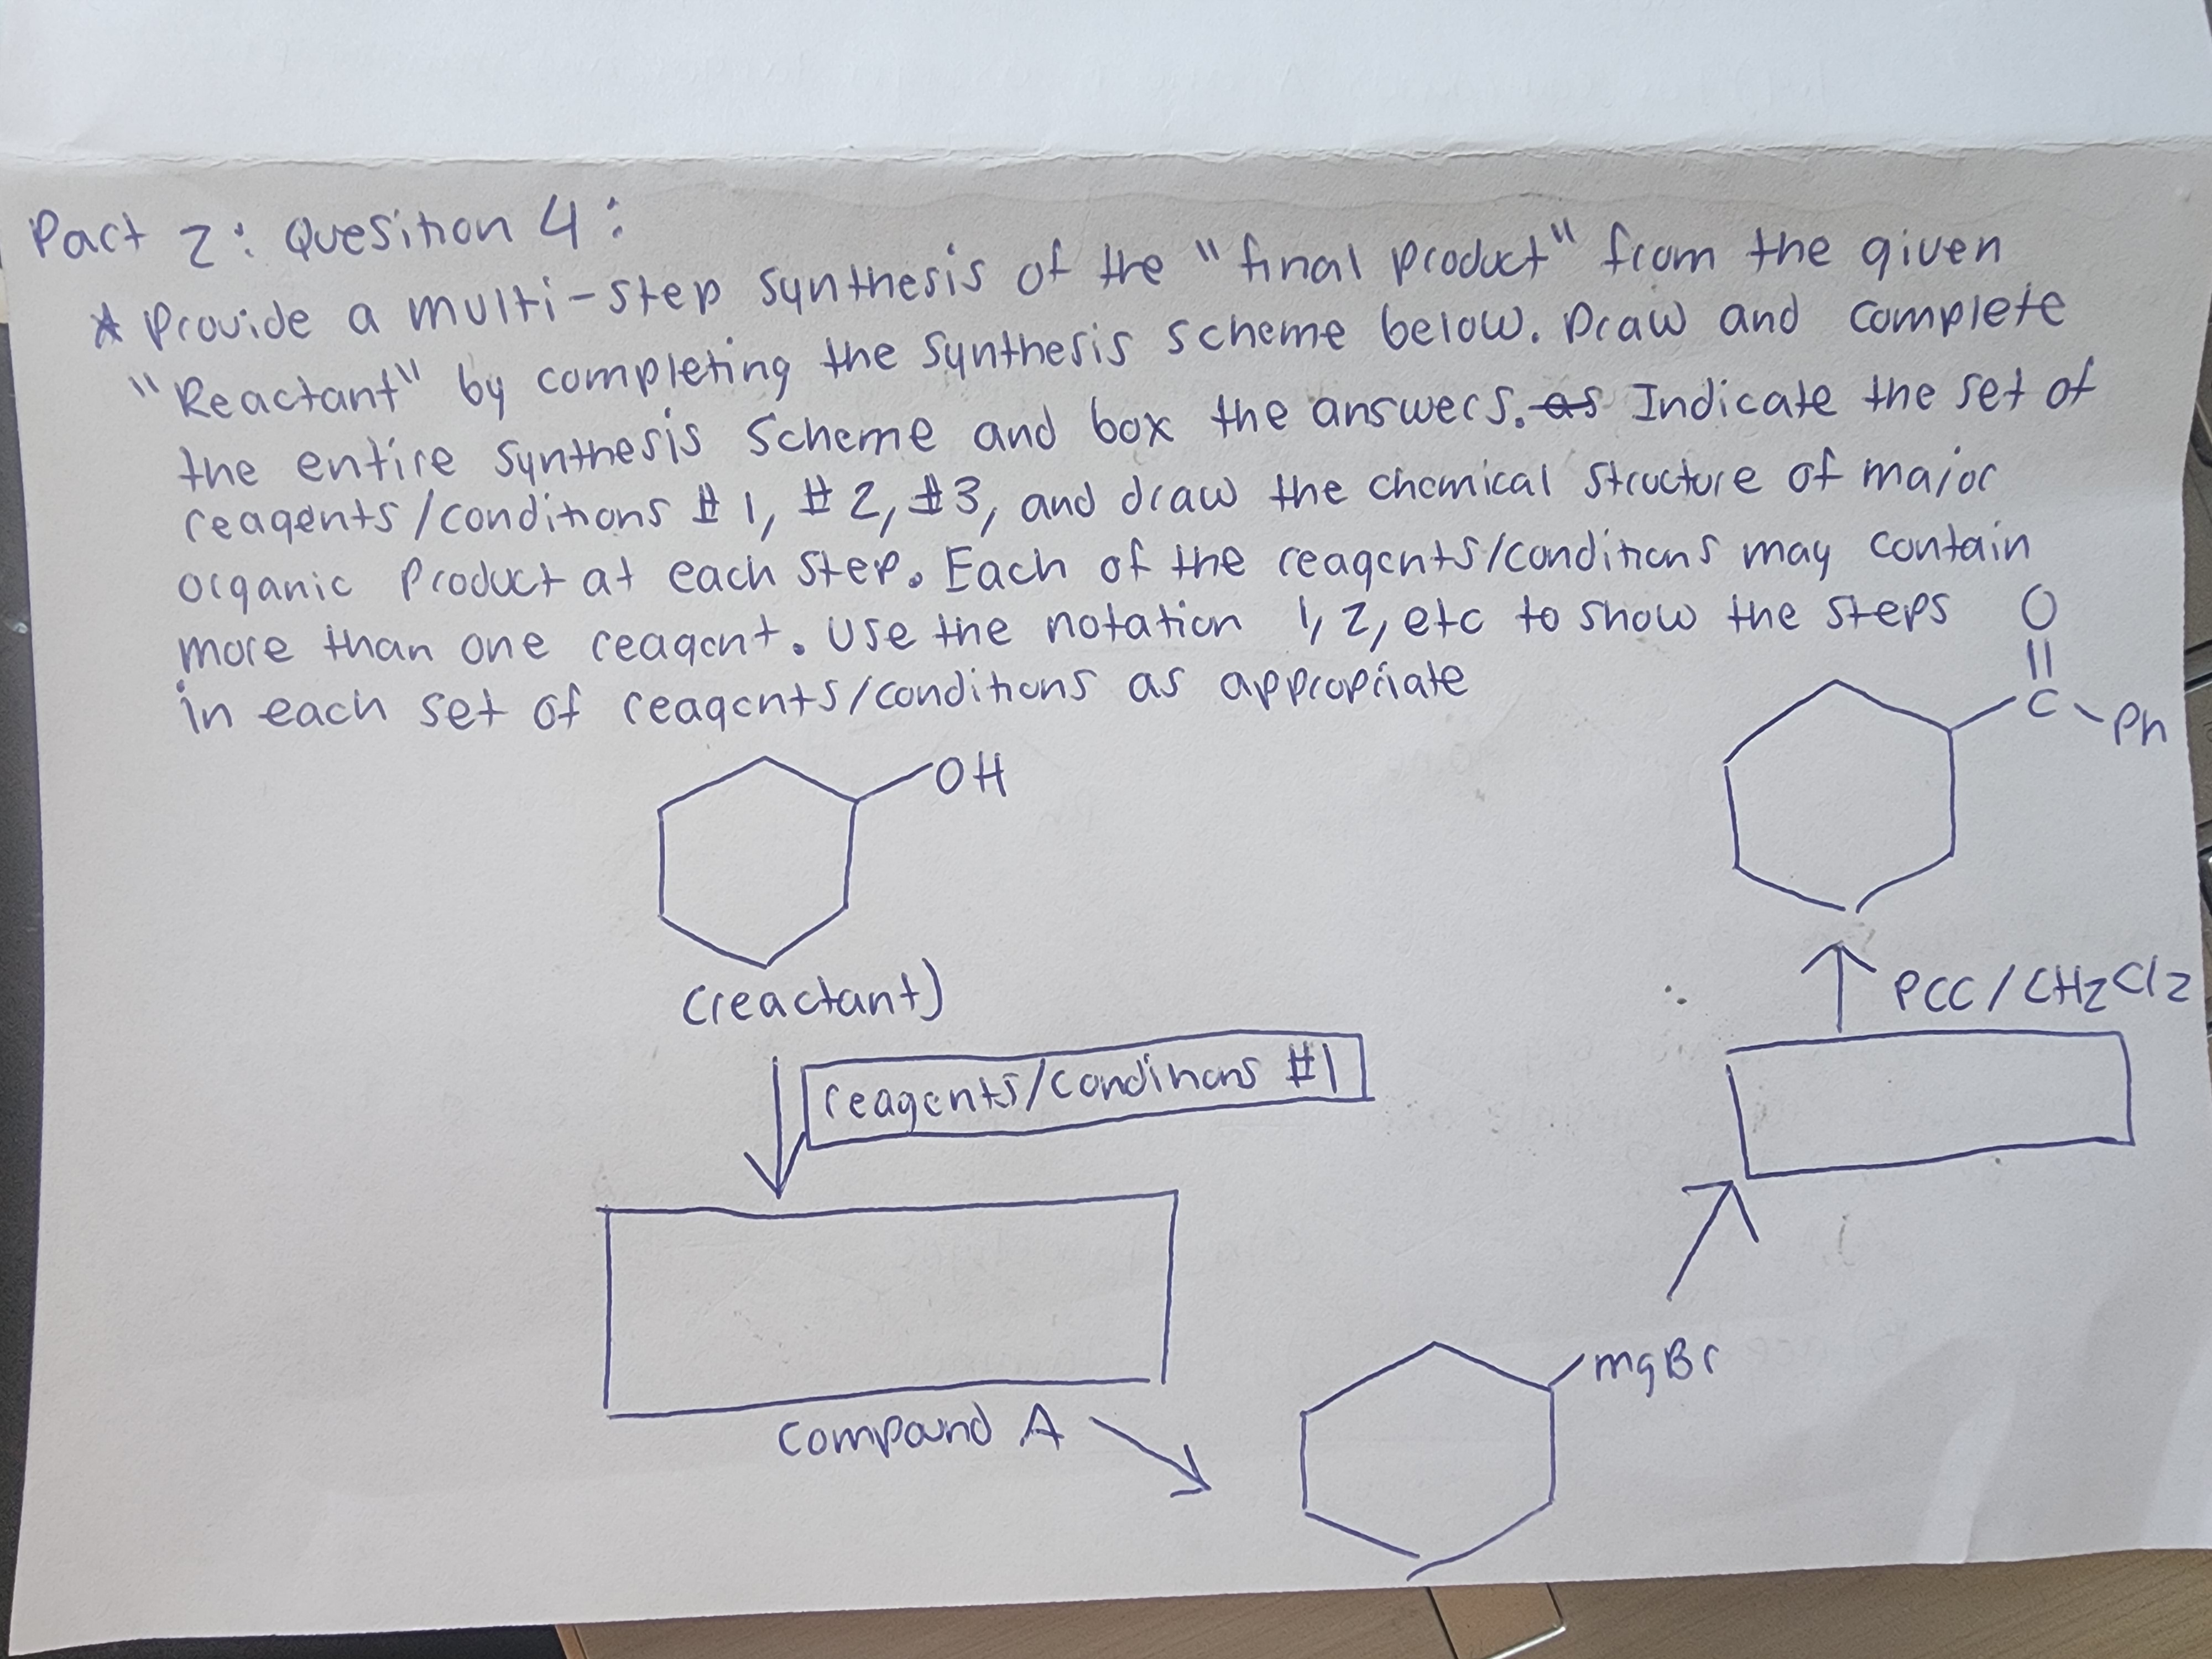 Part 2: Quesition 4:
* Provide a multi-step synthesis of the "final product" from the given
"Reactant" by completing the synthesis scheme below. Draw and complete
the entire synthesis scheme and box the answers. as Indicate the set of
reagents/conditions #1, #2, #3, and draw the chemical structure of major
organic product at each step. Each of the reagents/conditions may contain
more than one reagent. Use the notation 1, 2, etc to show the steps
in each set of reagents/conditions as appropriate
O
C
Ph
OH
(reactant)
PCC/CH2Cl2
reagents/conditions #1
compound A
mgBr